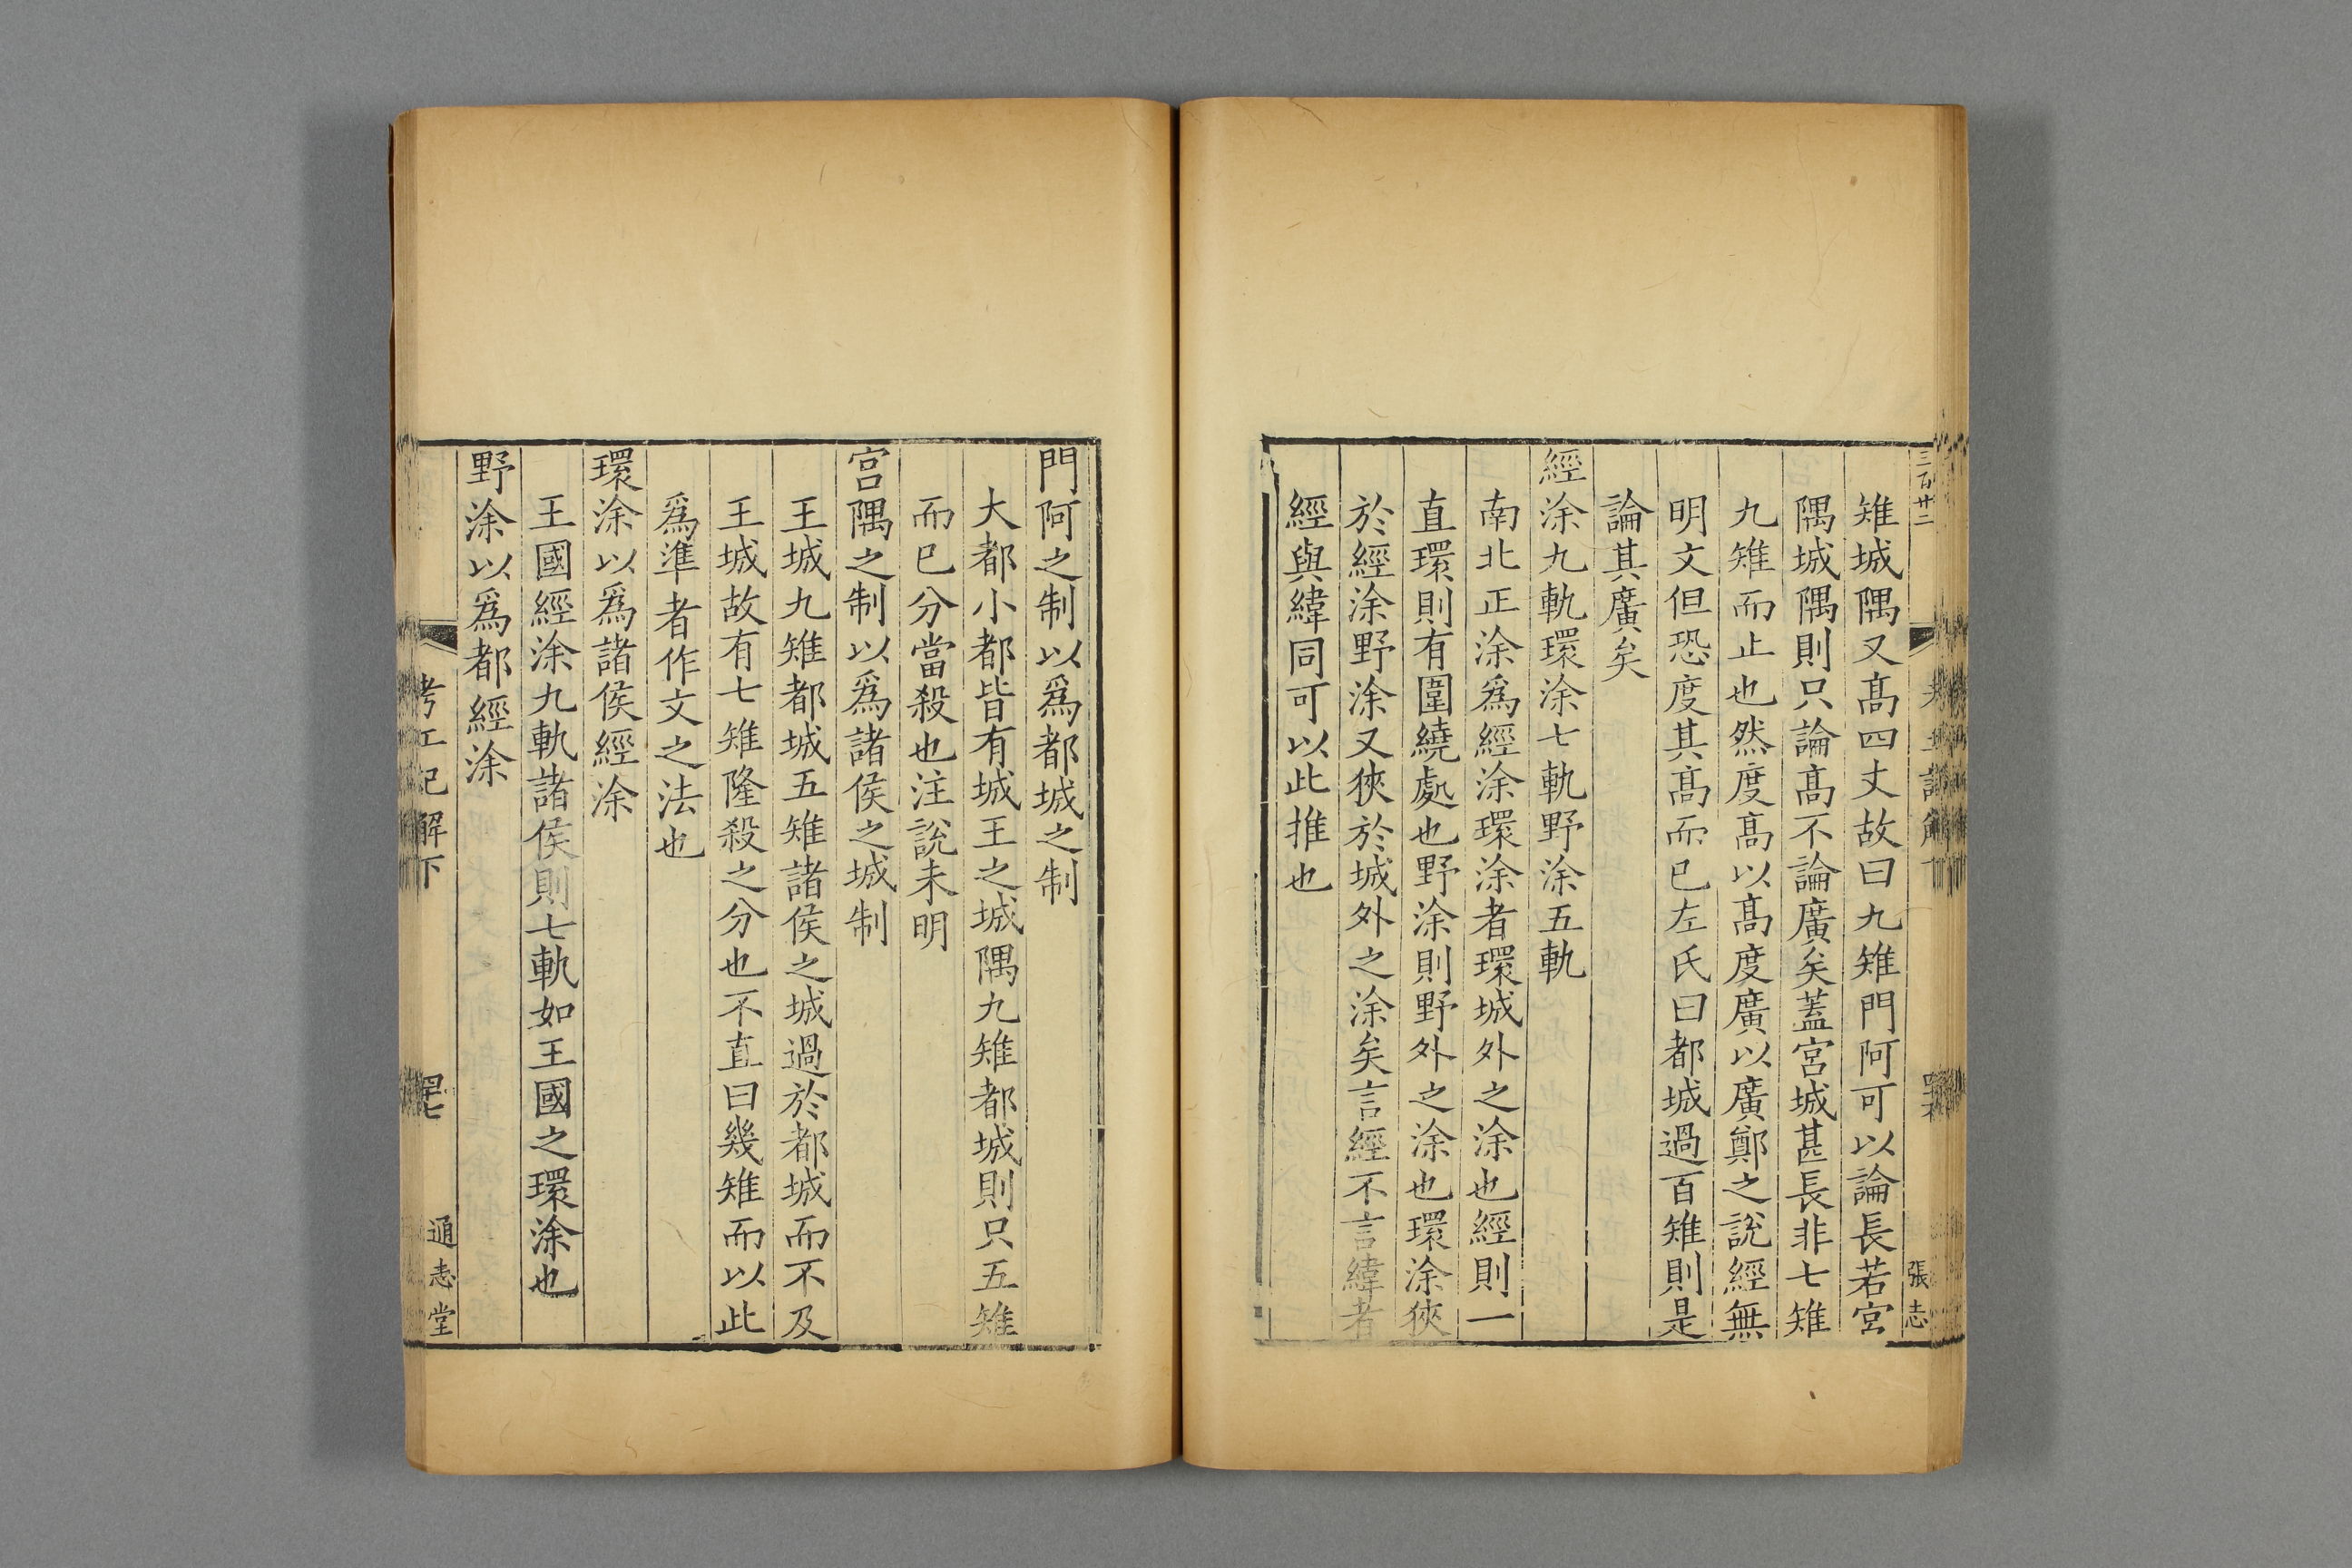 三百廿二
張志
雉城隅又髙四丈故曰九雉門阿可以論長若宮
隅城隅則只論髙不論廣矣蓋宮城甚長非七雉
九雉而止也然度髙以髙度廣以廣鄭之說經無
明文但恐度其髙而已左氏曰都城過百雉則是
論其廣矣
經涂九軌環涂七軌野涂五軌
南北正涂爲經涂環涂者環城外之涂也經則一
直環則有圍繞處也野涂則野外之涂也環涂狹
於經涂野涂又狹於城外之涂矣言經不言緯者
經與緯同可以此推也
門阿之制以爲都城之制
大都小都皆有城王之城隅九雉都城則只五雉
而已分當殺也注說未明
宮隅之制以爲諸侯之城制
王城九雉都城五雉諸侯之城過於都城而不及
王城故有七雉隆殺之分也不直曰幾雉而以此
爲準者作文之法也
環涂以爲諸侯經涂
王國經涂九軌諸侯則七軌如王國之環涂也
野涂以爲都經涂
考工記解下
通志堂